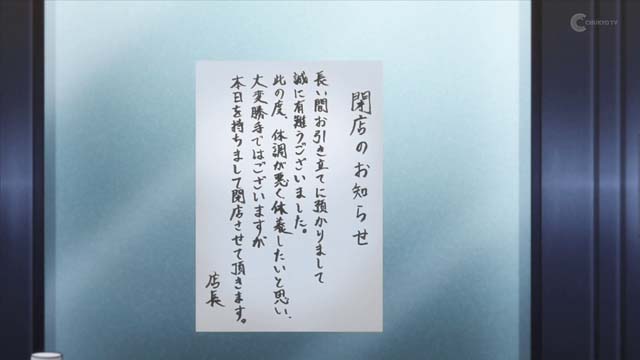 閉店のお知らせ
長い間お引き立てに預かりまして
誠に有難うございました。
此の度、体調が悪く休養したいと思い、
大変勝手ではございますが
本日を持ちまして閉店させて頂きます。
店長
CHUKYO TV